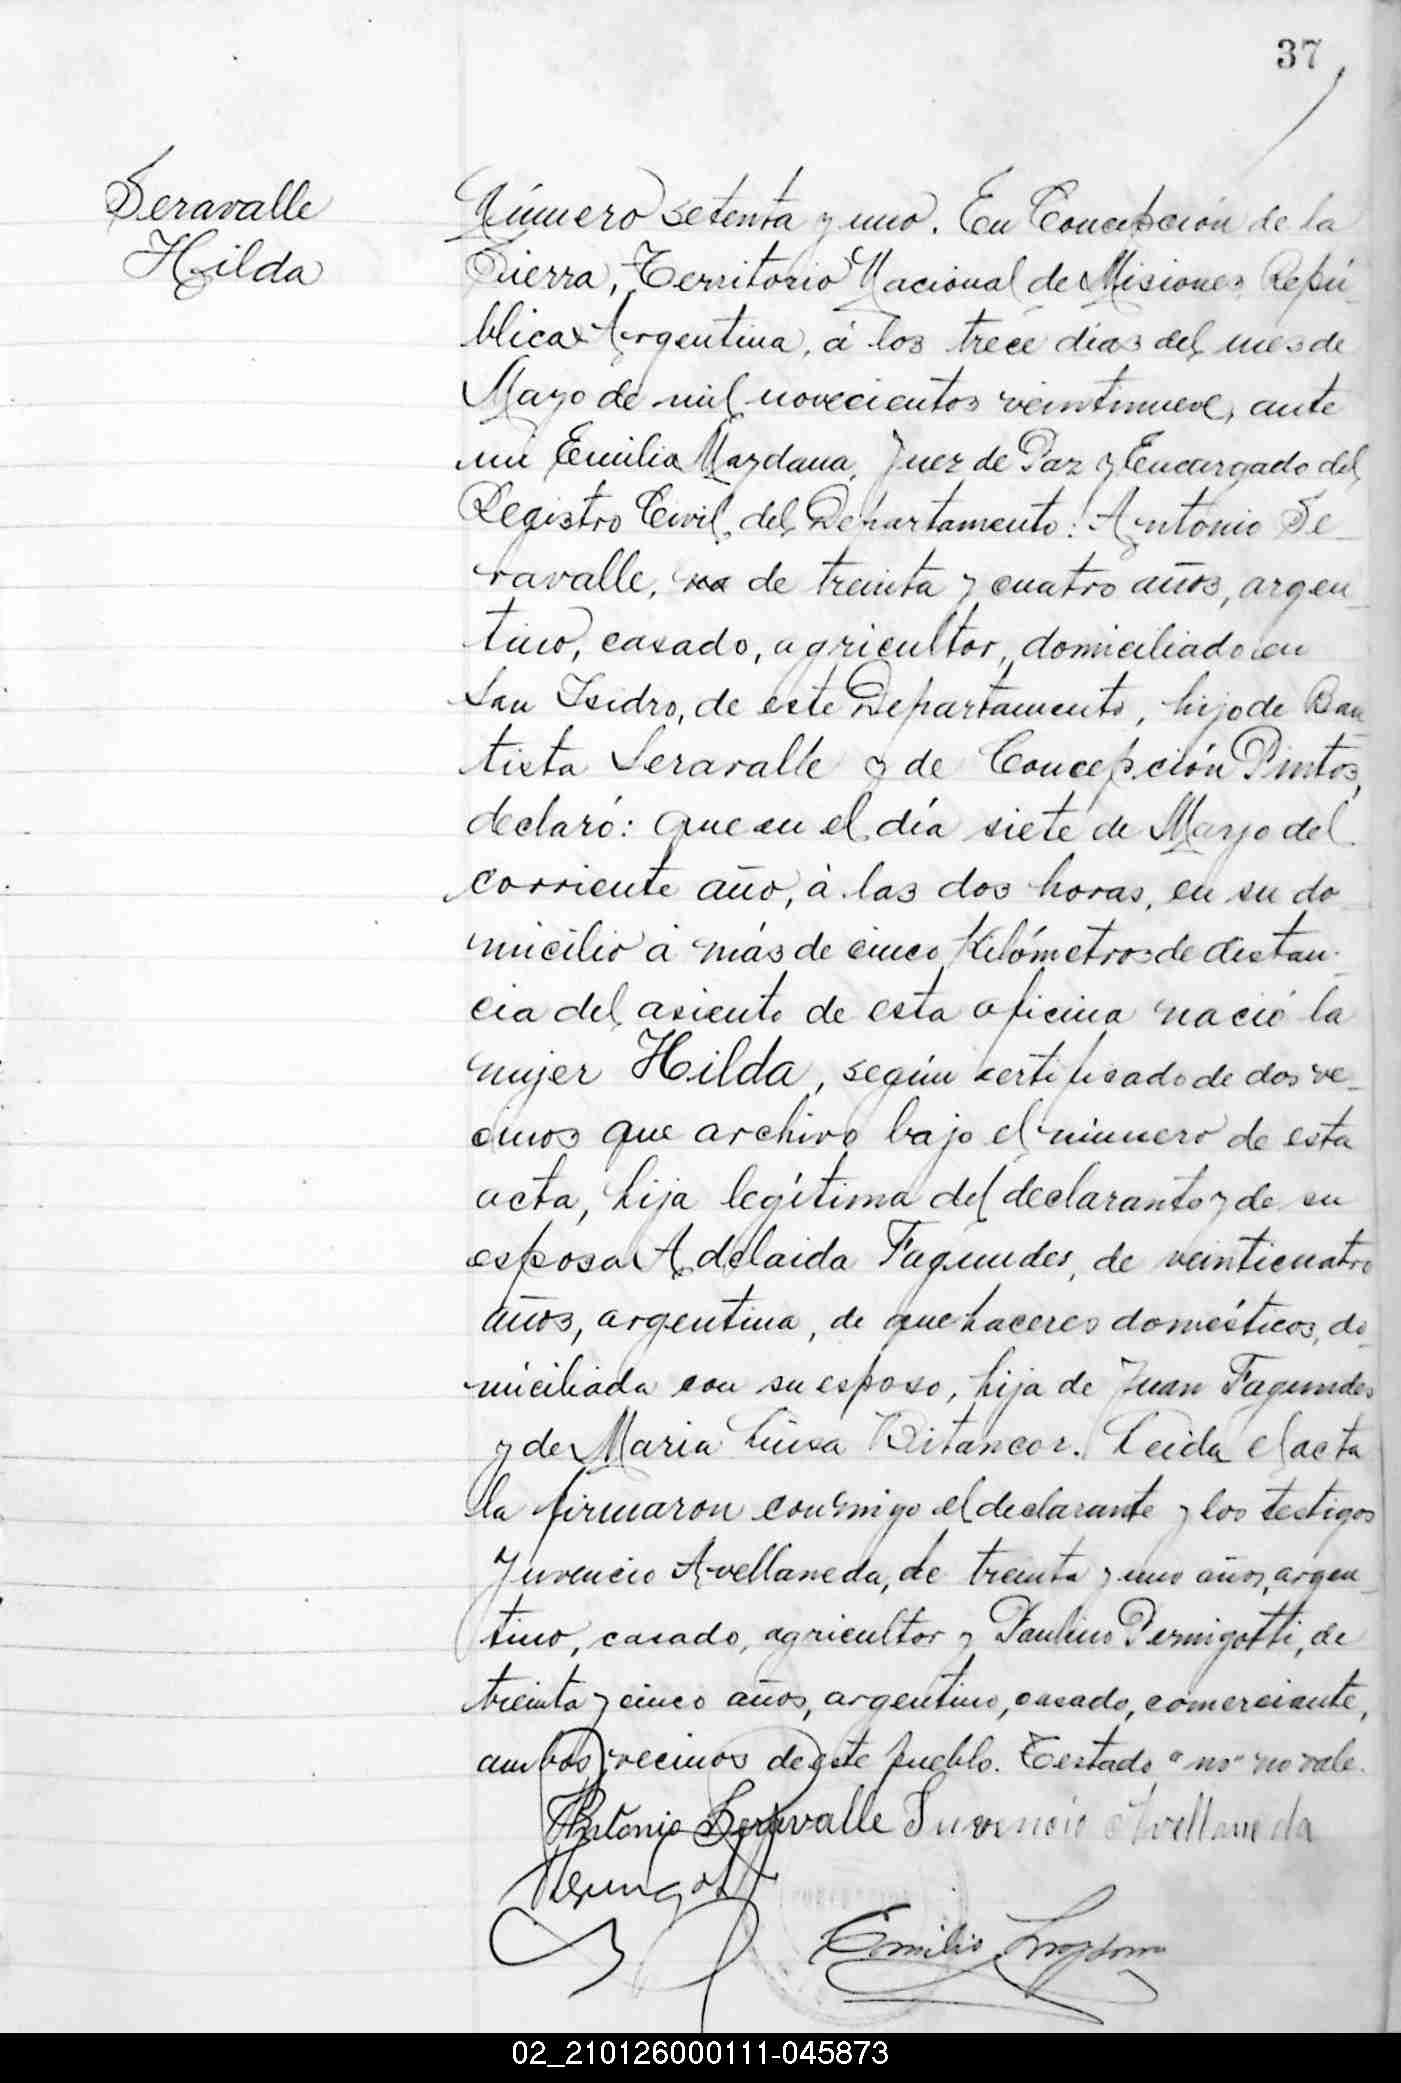 37
Seravalle
Hilda
Número setenta y uno. En Concepción de la
Sierra, Territorio Nacional de Misiones Repú-
blica Argentina, á los trece días del mes de
Mayo de mil novecientos veintinueve, ante
mi Emilio Maydana, Juez de Paz y Encargado del
Registro Civil del Departamento: Antonio Se-
ravalle, no de treinta y cuatro años, argen-
tino, casado, agricultor, domiciliado en
San Isidro, de este Departamento, hijo de Bau
tista Seravalle y de Concepción Pintos,
declaró: que en el día siete de Mayo del
corriente año, á las dos horas, en su do-
micilio á más de cinco Kilómetros de distan-
cia del asiento de esta oficina nació la
mujer Hilda, según certificado de dos ve-
cinos que archivo bajo el número de esta
acta, hija legítima del declarante y de su
esposa Adelaida Fagundes, de veinticuatro
años, argentina, de quehaceres domésticos, do-
miciliada con su esposo, hija de Juan Fagundes
y de Maria Luisa Bitancor. Leida el acta
la firmaron conmigo el declarante y los testigos
Juvencio Avellaneda, de treinta y uno años, argen-
tino, casado, agricultor y Paulino Pernigotti, de
treinta y cinco años, argentino, casado, comerciante,
ambos vecinos de este pueblo. Testado "no" no vale.
Antonio Seravalle Juvencio Avellaneda
Emilio
02_210126000111-045873